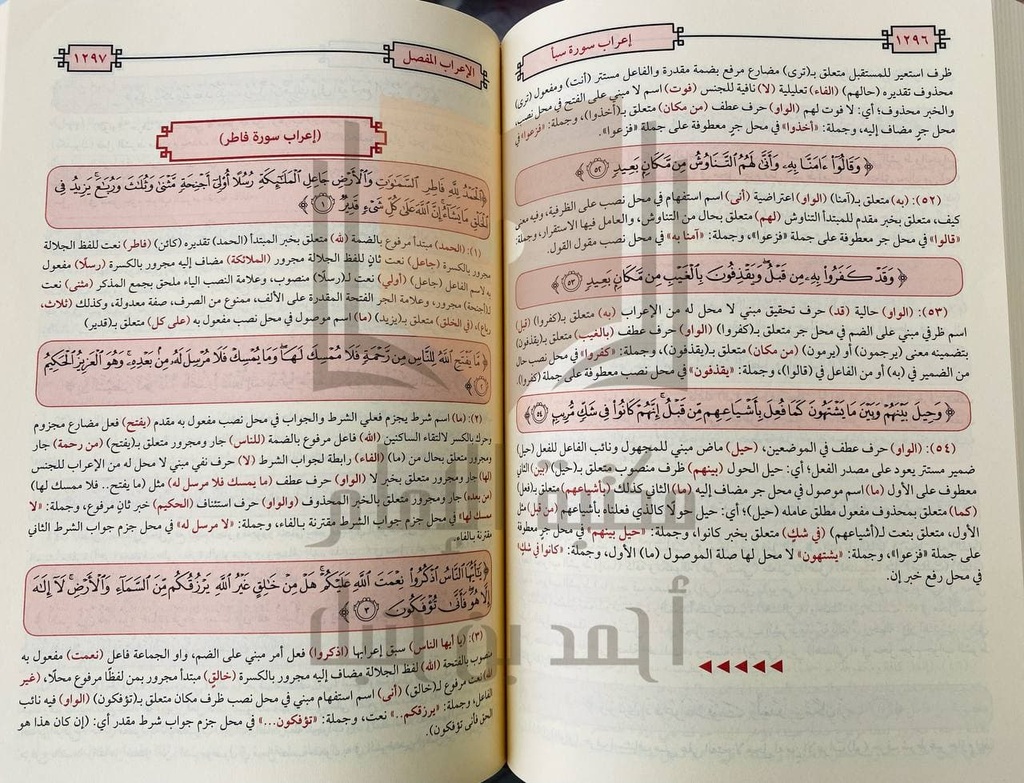 ١٢٩٦
إعراب سورة سبأ
ظرف استعير للمستقبل متعلق بـ(ترى) مضارع مرفع بضمة مقدرة والفاعل مستتر (أنت) ومفعول (ترى)
محذوف تقديره (حالهم) (الفاء) تعليلية (لا) نافية للجنس (فوت) اسم لا مبني على الفتح في محل نصب،
والخبر محذوف؛ أي: لا فوت لهم (الواو) حرف عطف (من مكان) متعلق بـ(أخذوا)، وجملة: «فزعوا» في
محل جر مضاف إليه، وجملة: «أخذوا» في محل جر معطوفة على جملة «فزعوا».
﴿ وَقَالُوٓا۟ ءَامَنَّا بِهِۦ وَأَنَّىٰ لَهُمُ ٱلتَّنَاوُشُ مِن مَّكَانٍۭ بَعِيدٍ ٥٢ ﴾
(٥٢): (به) متعلق بـ(آمنا) (الواو) اعتراضية (أنى) اسم استفهام في محل نصب على الظرفية، وفيه معنى
كيف، متعلق بخبر مقدم للمبتدأ التناوش (لهم) متعلق بحال من التناوش، والعامل فيها الاستقرار، وجملة:
«قالوا» في محل جر معطوفة على جملة «فزعوا»، وجملة: «آمنا به» في محل نصب مقول القول.
﴿ وَقَدْ كَفَرُوا۟ بِهِۦ مِن قَبْلُ وَيَقْذِفُونَ بِٱلْغَيْبِ مِن مَّكَانٍۭ بَعِيدٍ ٥٣ ﴾
(٥٣): (الواو) حالية (قد) حرف تحقيق مبني لا محل له من الإعراب (به) متعلق بـ(كفروا) (قبل)
اسم ظرفي مبني على الضم في محل جر متعلق بـ(كفروا) (الواو) حرف عطف (بالغيب) متعلق بـ(يقذفون)
بتضمينه معنى (يرجمون) أو (يرمون) (من مكان) متعلق بـ(يقذفون)، وجملة: «كفروا» في محل نصب حال
من الضمير في (به) أو من الفاعل في (قالوا)، وجملة: «يقذفون» في محل نصب معطوفة على جملة (كفروا).
﴿ وَحِيلَ بَيْنَهُمْ وَبَيْنَ مَا يَشْتَهُونَ كَمَا فُعِلَ بِأَشْيَاعِهِم مِّن قَبْلُ إِنَّهُمْ كَانُوا۟ فِى شَكٍّ مُّرِيبٍۭ ٥٤ ﴾
(٥٤): (الواو) حرف عطف في الموضعين، (حيل) ماض مبني للمجهول ونائب الفاعل للفعل (حيل)
ضمير مستتر يعود على مصدر الفعل؛ أي: حيل الحول (بينهم) ظرف منصوب متعلق بـ(حيل) (بين) الثاني
معطوف على الأول (ما) اسم موصول في محل جر مضاف إليه (ما) الثاني كذلك (بأشياعهم) متعلق بـ(فعل)
(كما) متعلق بمحذوف مفعول مطلق عامله (حيل)؛ أي: حيل حولًا كالذي فعلناه بأشياعهم (من قبل) مثل
الأول، متعلق بنعت لـ(أشياعهم) (في شك) متعلق بخبر كانوا، وجملة: «حيل بينهم» في محل جر معطوفة
على جملة «فزعوا»، وجملة: «يشتهون» لا محل لها صلة الموصول (ما) الأول، وجملة: «كانوا في شك»
في محل رفع خبر إن.
الإعراب المفصل
١٢٩٧
(إعراب سورة فاطر)
﴿ ٱلْحَمْدُ لِلَّهِ فَاطِرِ ٱلسَّمَٰوَٰتِ وَٱلْأَرْضِ جَاعِلِ ٱلْمَلَٰٓئِكَةِ رُسُلًا أُو۟لِىٓ أَجْنِحَةٍ مَّثْنَىٰ وَثُلَٰثَ وَرُبَٰعَ يَزِيدُ فِى
ٱلْخَلْقِ مَا يَشَآءُ إِنَّ ٱللَّهَ عَلَىٰ كُلِّ شَىْءٍ قَدِيرٌ ١ ﴾
(١): (الحمد) مبتدأ مرفوع بالضمة (لله) متعلق بخبر المبتدأ (الحمد) تقديره (كائن) (فاطر) نعت للفظ الجلالة
مجرور بالكسرة (جاعل) نعت ثانٍ للفظ الجلالة مجرور (الملائكة) مضاف إليه مجرور بالكسرة (رسلًا) مفعول
به لاسم الفاعل (جاعل) (أولي) نعت لـ(رسلًا) منصوب، وعلامة النصب الياء ملحق بجمع المذكر (مثنى) نعت
لـ(أجنحة) مجرور، وعلامة الجر الفتحة المقدرة على الألف، ممنوع من الصرف، صفة معدولة، وكذلك (ثلاث،
رباع)، (في الخلق) متعلق بـ(يزيد) (ما) اسم موصول في محل نصب مفعول به (على كل) متعلق بـ(قدير)
﴿ مَّا يَفْتَحِ ٱللَّهُ لِلنَّاسِ مِن رَّحْمَةٍ فَلَا مُمْسِكَ لَهَا وَمَا يُمْسِكْ فَلَا مُرْسِلَ لَهُۥ مِنۢ بَعْدِهِۦ وَهُوَ ٱلْعَزِيزُ ٱلْحَكِيمُ
٢ ﴾
(٢): (ما) اسم شرط يجزم فعلي الشرط والجواب في محل نصب مفعول به مقدم (يفتح) فعل مضارع مجزوم
وحرك بالكسر لالتقاء الساكنين (الله) فاعل مرفوع بالضمة (للناس) جار ومجرور متعلق بـ(يفتح) (من رحمة) جار
ومجرور متعلق بحال من (ما) (الفاء) رابطة لجواب الشرط (لا) حرف نفي مبني لا محل له من الإعراب للجنس
(لها) جار ومجرور متعلق بخبر لا (الواو) حرف عطف (ما يمسك فلا مرسل له) مثل (ما يفتح.. فلا ممسك لها)
(من بعده) جار ومجرور متعلق بالخبر المحذوف (والواو) حرف استئناف (الحكيم) خبر ثانٍ مرفوع، وجملة: «لا
ممسك لها» في محل جزم جواب الشرط مقترنة بـالفاء، وجملة: «لا مرسل له» في محل جزم جواب الشرط الثاني
مقترنة بـالفاء.
﴿ يَٰٓأَيُّهَا ٱلنَّاسُ ٱذْكُرُوا۟ نِعْمَتَ ٱللَّهِ عَلَيْكُمْ هَلْ مِنْ خَٰلِقٍ غَيْرُ ٱللَّهِ يَرْزُقُكُم مِّنَ ٱلسَّمَآءِ وَٱلْأَرْضِ لَآ إِلَٰهَ
إِلَّا هُوَ فَأَنَّىٰ تُؤْفَكُونَ ٣ ﴾
(٣): (يا أيها الناس) سبق إعرابها (اذكروا) فعل أمر مبني على الضم، واو الجماعة فاعل (نعمت) مفعول به
منصوب بالفتحة (الله) لفظ الجلالة مضاف إليه مجرور بالكسرة (خالق) مبتدأ مجرور بمن لفظًا مرفوع محلًا، (غير
الله) نعت مرفوع لـ(خالق) (أنى) اسم استفهام مبني في محل نصب ظرف مكان متعلق بـ(تؤفكون) (الواو) فيه نائب
الفاعل، وجملة: «يرزقكم..» نعت، وجملة: «تؤفكون...» في محل جزم جواب شرط مقدر أي: (إن كان هذا هو
الحق فأنى تؤفكون).
أحمد بن